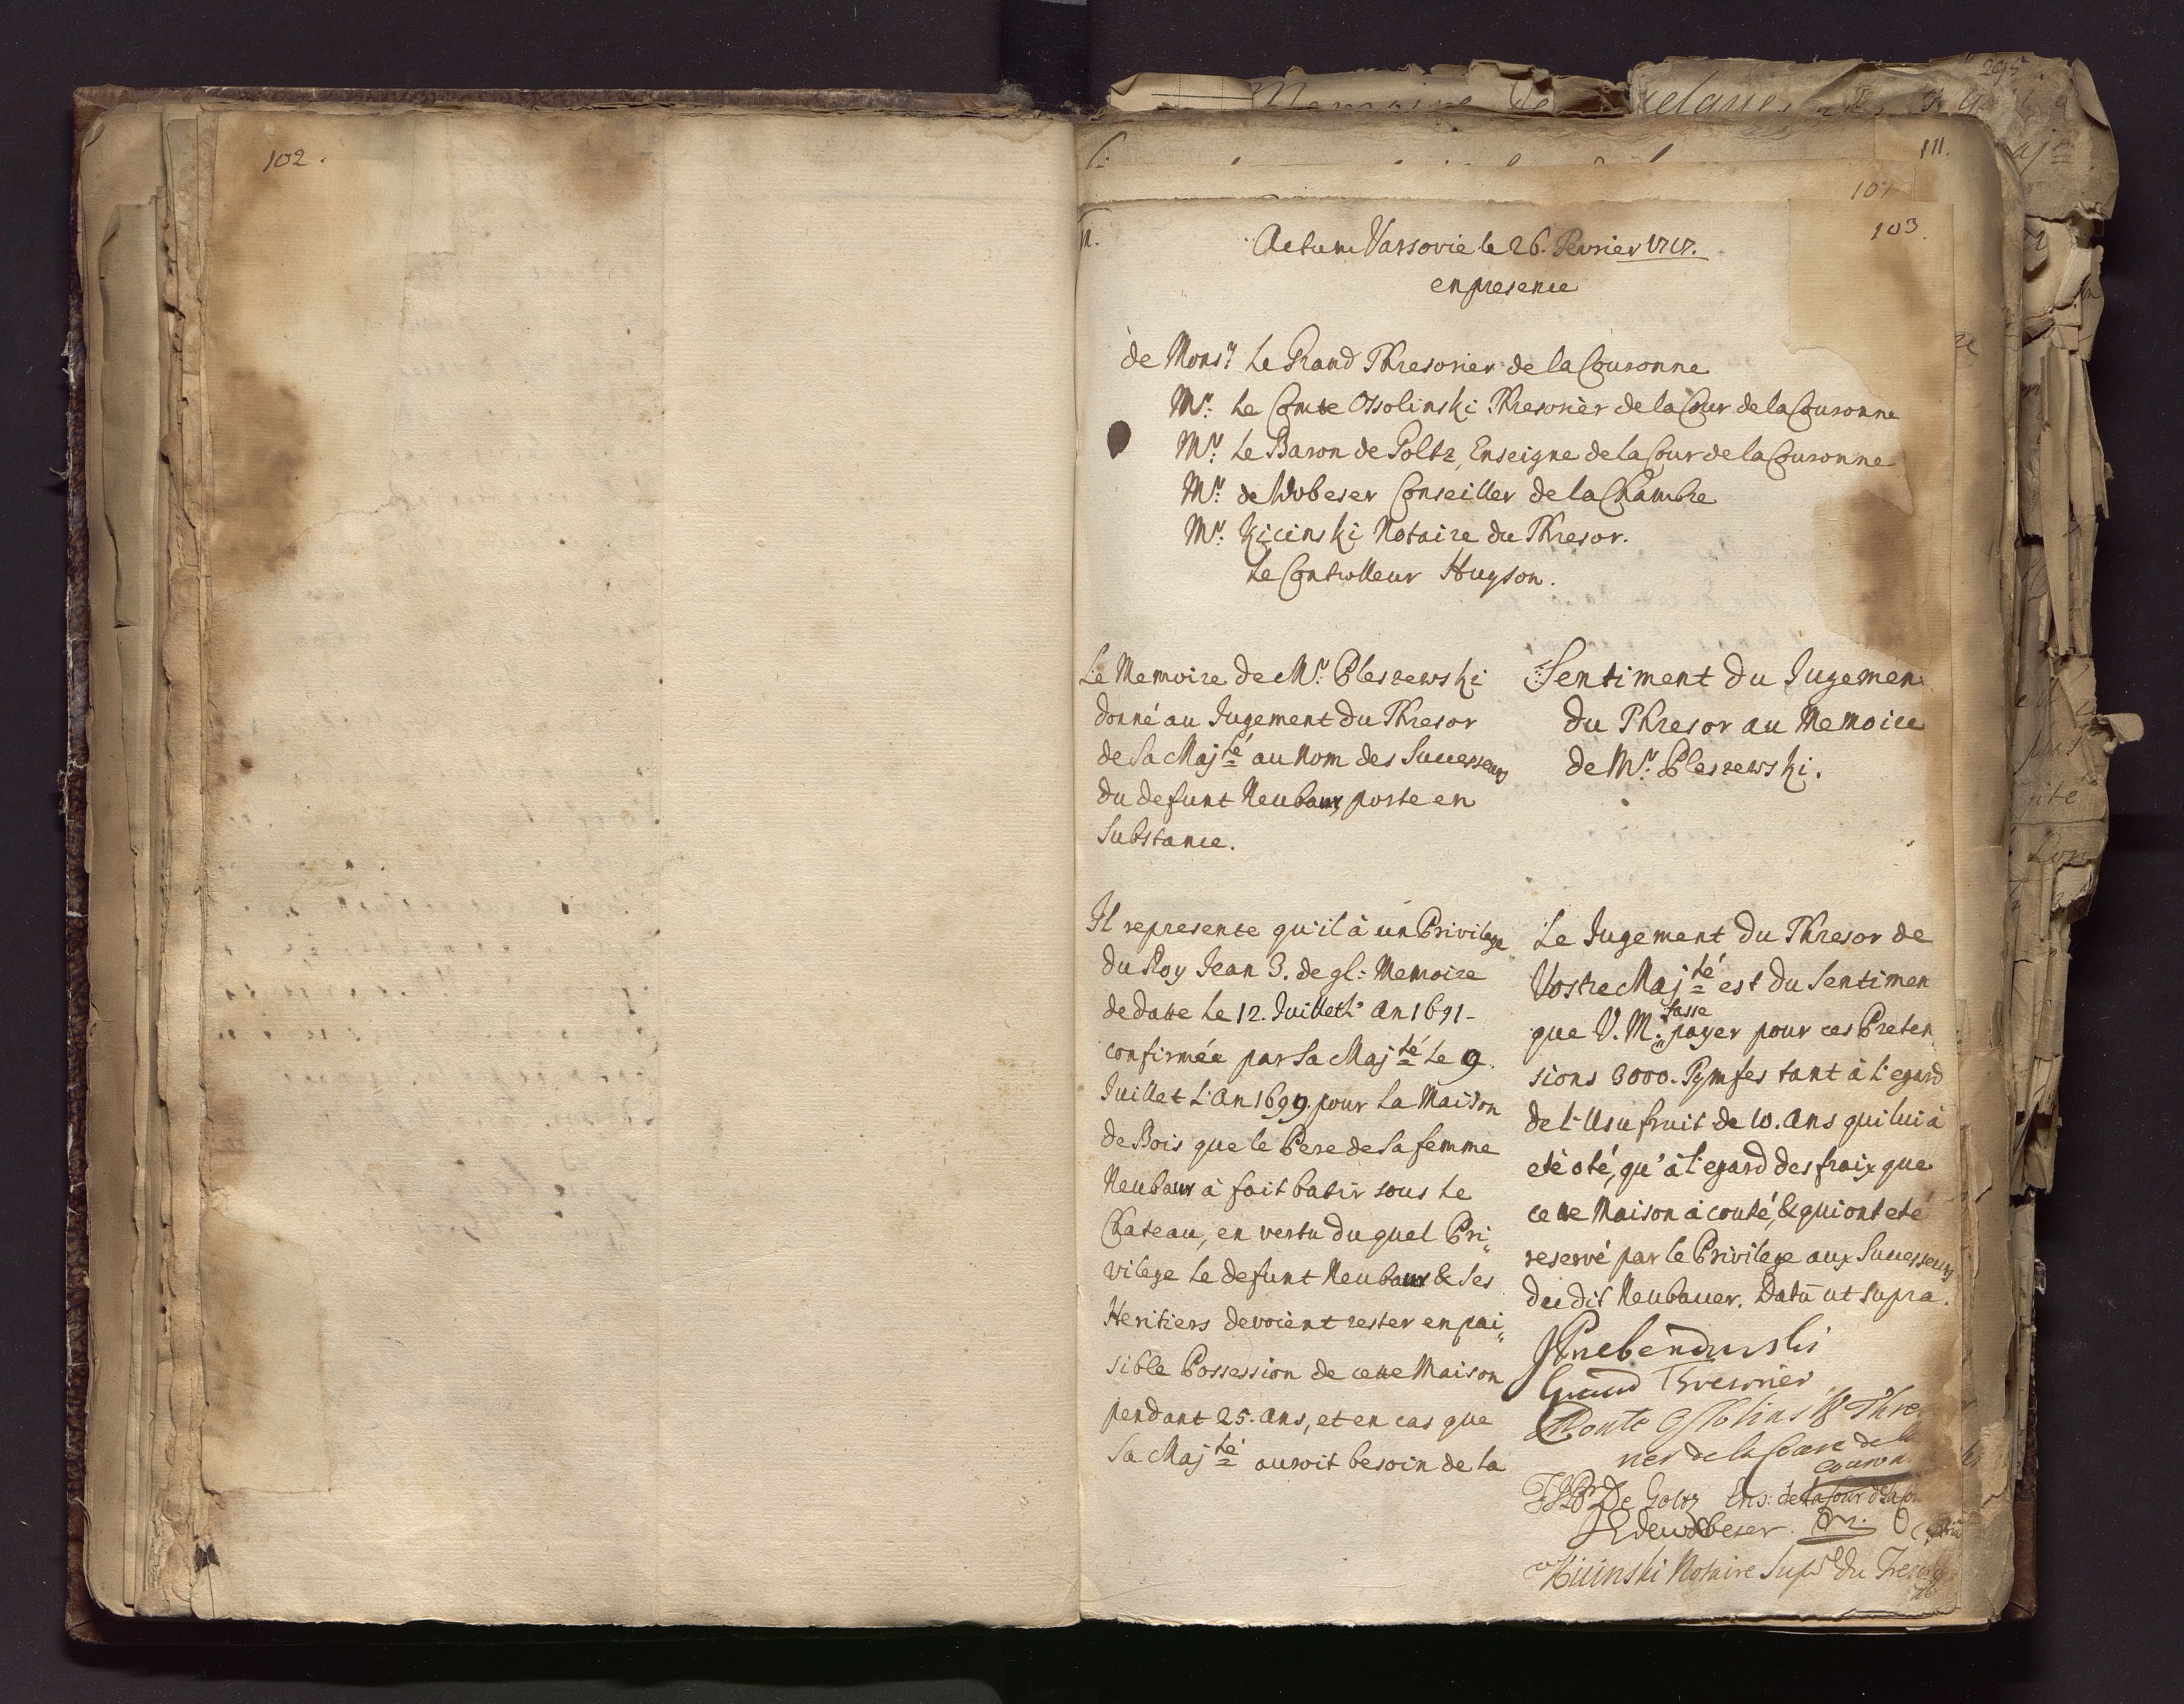 102.
111.
107
103.
Actum Varsovie le 26. Fevrier 1717.
en presence
de Mons.r Le Grand Thresorier de la Couronne
Mr. Le Comte Ossolinski Thresorier de la Cour de la Couronne
Mr. Le Baron de Goltz, Enseigne de la Cour de la Couronne
Mr. de Wobeser Conseiller de la Chambre
Mr. Kicinski Notaire du Thresor.
Le Controlleur Hugson.
Le Memoire de Mr. Pleszewski
donné au Jugement du Thresor
de Sa Maj.té au Nom des Successeurs
du defunt Neubaur, porte en
Substance.
Il represente qu'il à un Privilege
du Roy Jean 3. de gl: Memoire
de datte le 12. Juillet L'An 1691
confirmée par Sa Maj.té le 9.
Juillet L'An 1699. pour La Maison
de Bois que le Pere de Sa femme
Neubaur à fait batir sous le
Chateau, en vertu du quel Pri„
vilege le defunt Neubaur & Ses
Heritiers devoient rester en pai„
sible Possession de cette Maison
pendant 25. ans, et en cas que
Sa Maj.té auroit besoin de la
Sentiment du Jugemen
du Thresor au Memoire
de Mr. Pleszewski.
Le Jugement du Thresor de
Vostre Maj.té est du Sentimen
que V. M. fasse payer pour ces Preten
sions 3000. Tymfes tant à l'egard
de l'Usufruit de 10. Ans qui lui à
eté oté, qu'à l'egard des fraix que
cette Maison à couté, & qui ont eté
reservé par le Privilege aux Successeurs
du dit Neubauer. Datu ut Supra.
Przebendowski
Grand Thresorier
Comte Ossolinski Thre
rier de la Cour de la
Couron
De Goltz Ens: de la Cour de la
de Wobeser
Kicinski Notaire Sup. du Treso